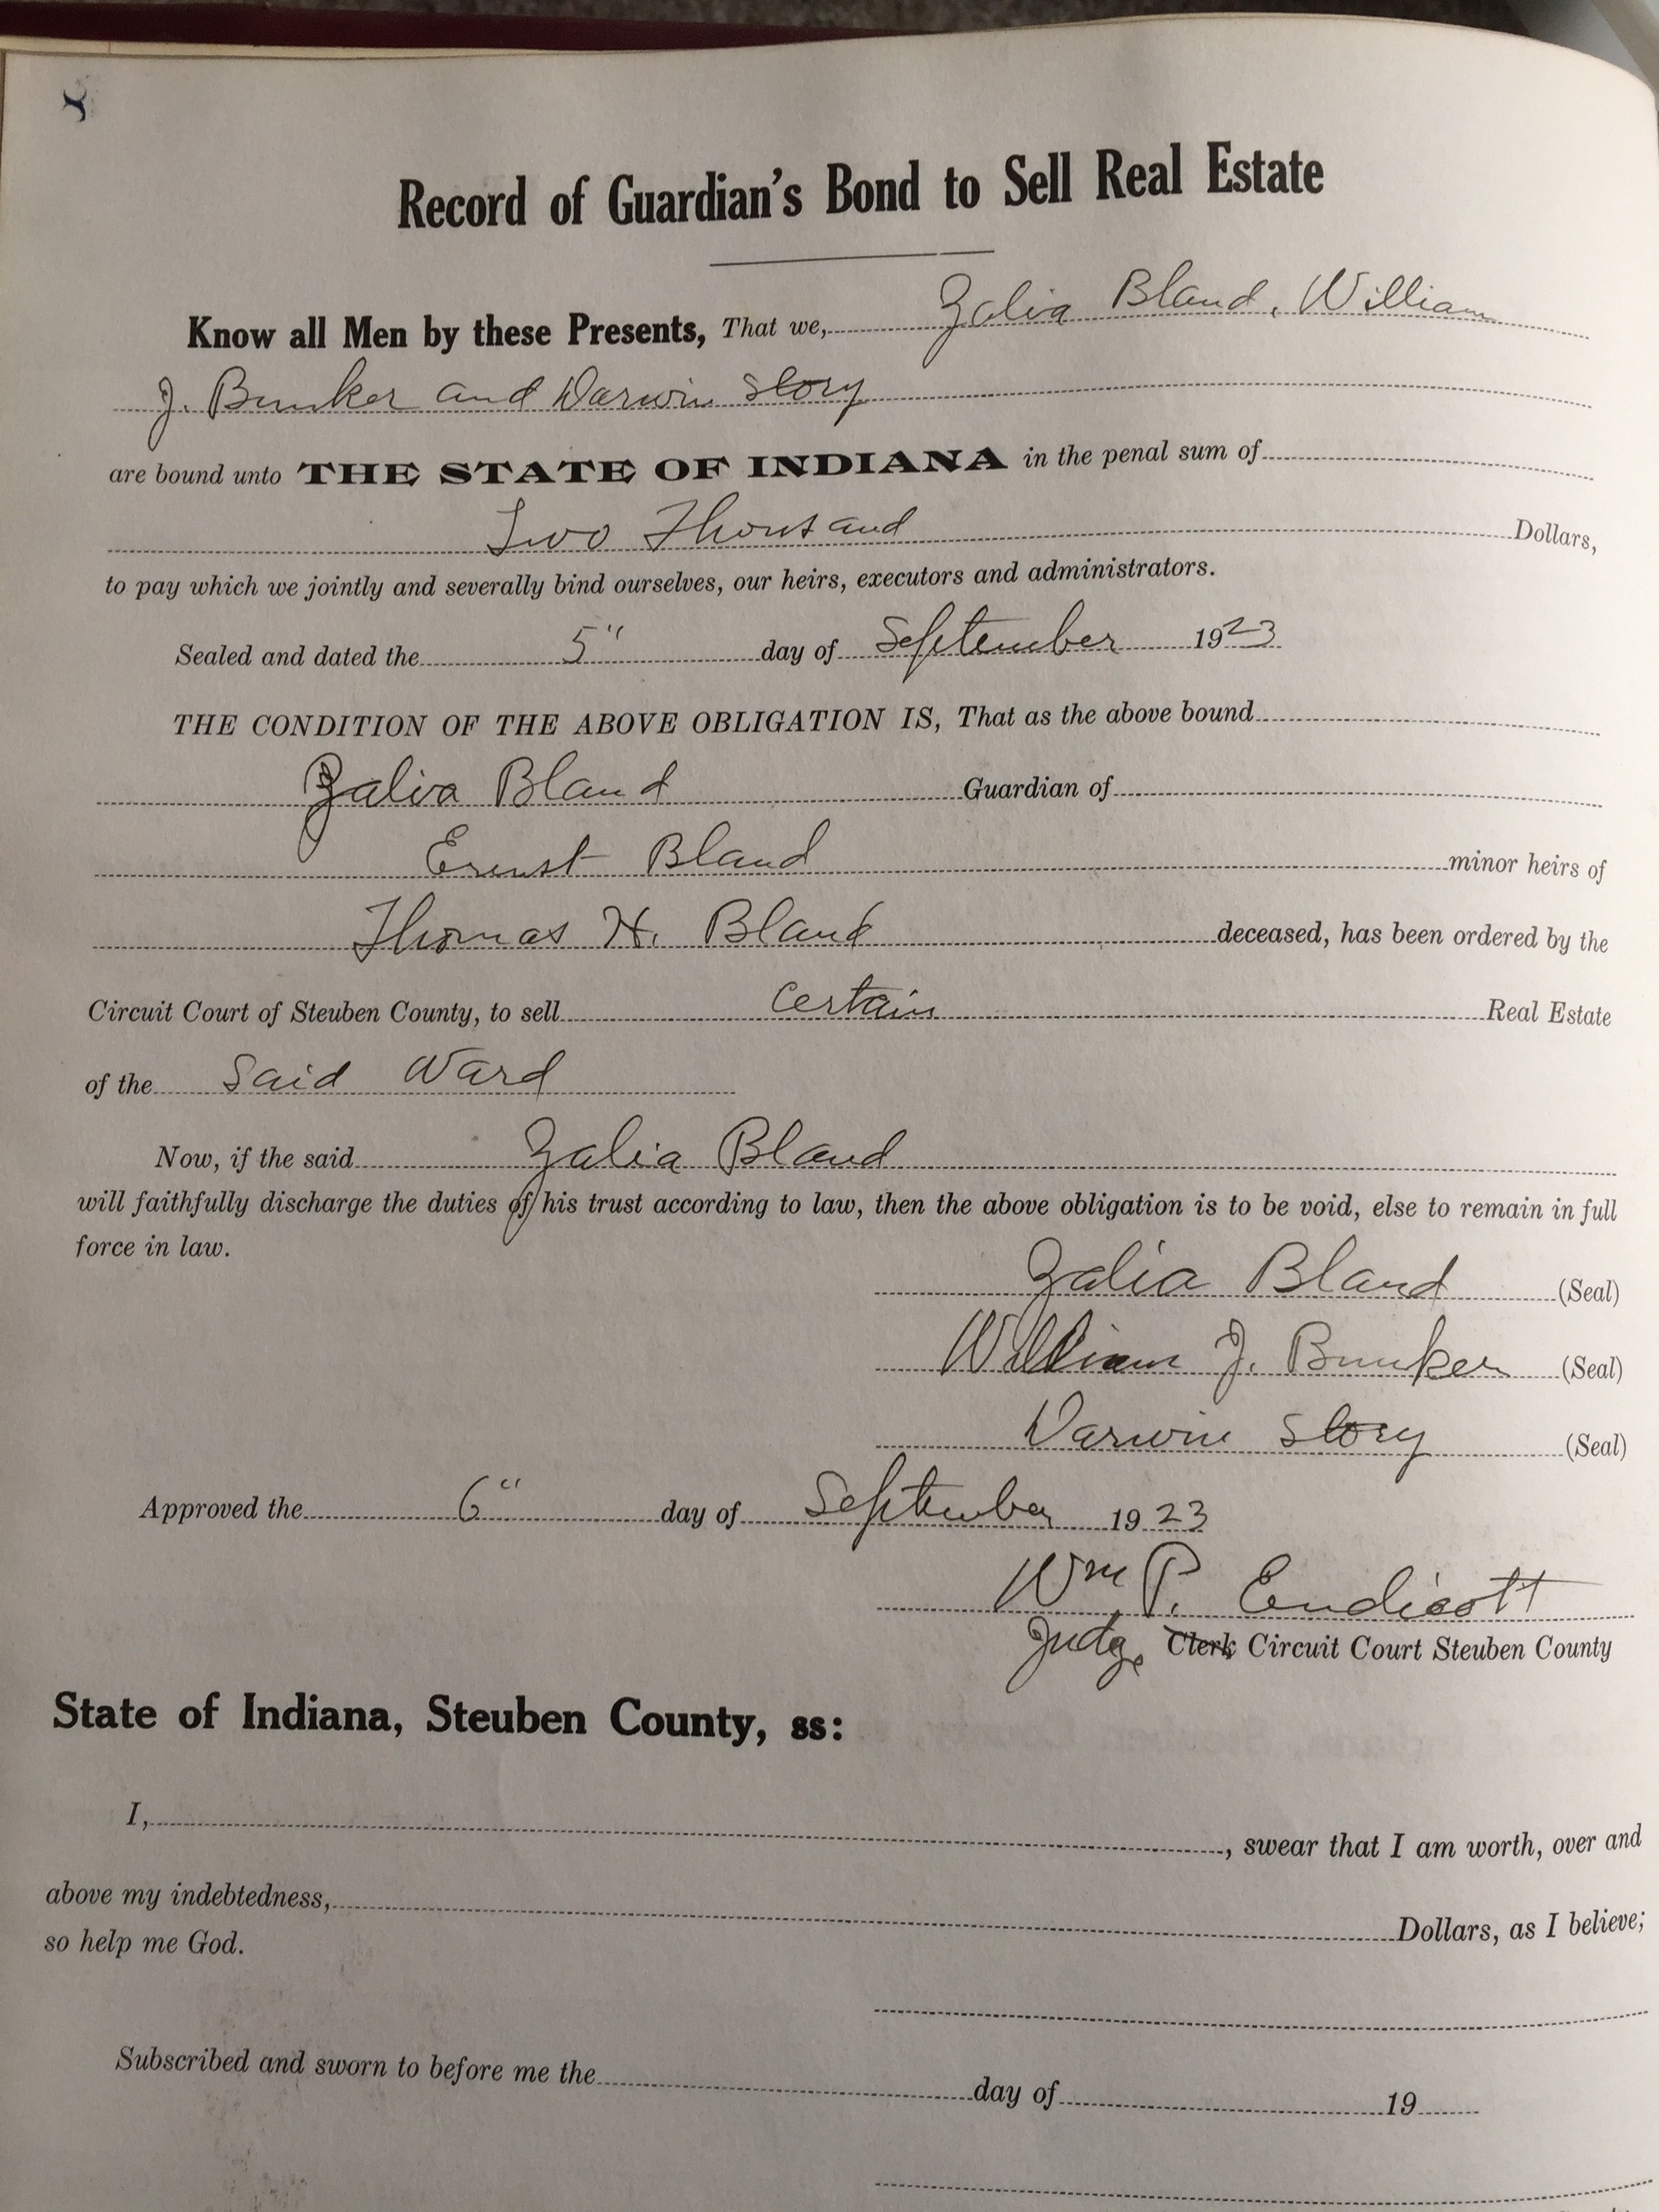 8
Record of Guardian's Bond to Sell Real Estate
Know all Men by these Presents, That we, Zalia Bland, William
J. Bunker and Darwin Story
are bound unto THE STATE OF INDIANA in the penal sum of
Two Thousand Dollars,
to pay which we jointly and severally bind ourselves, our heirs, executors and administrators.
Sealed and dated the 5" day of September 1923
THE CONDITION OF THE ABOVE OBLIGATION IS, That as the above bound
Zalia Bland Guardian of
Ernst Bland minor heirs of
Thomas H. Bland deceased, has been ordered by the
Circuit Court of Steuben County, to sell certain Real Estate
of the Said Ward
Now, if the said Zalia Bland
will faithfully discharge the duties of his trust according to law, then the above obligation is to be void, else to remain in full
force in law.
Zalia Bland (Seal)
William J. Bunker (Seal)
Darwin Story (Seal)
Approved the 6" day of September 1923
Wm P. Endicott
Judge Clerk Circuit Court Steuben County
State of Indiana, Steuben County, ss:
I, , swear that I am worth, over and
above my indebtedness, Dollars, as I believe;
so help me God.
Subscribed and sworn to before me the day of 19